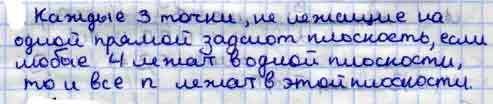 Каждые 3 точки, не лежащие на
одной прямой задают плоскость, если
любые 4 лежат в одной плоскости,
то и все n лежат в этой плоскости.